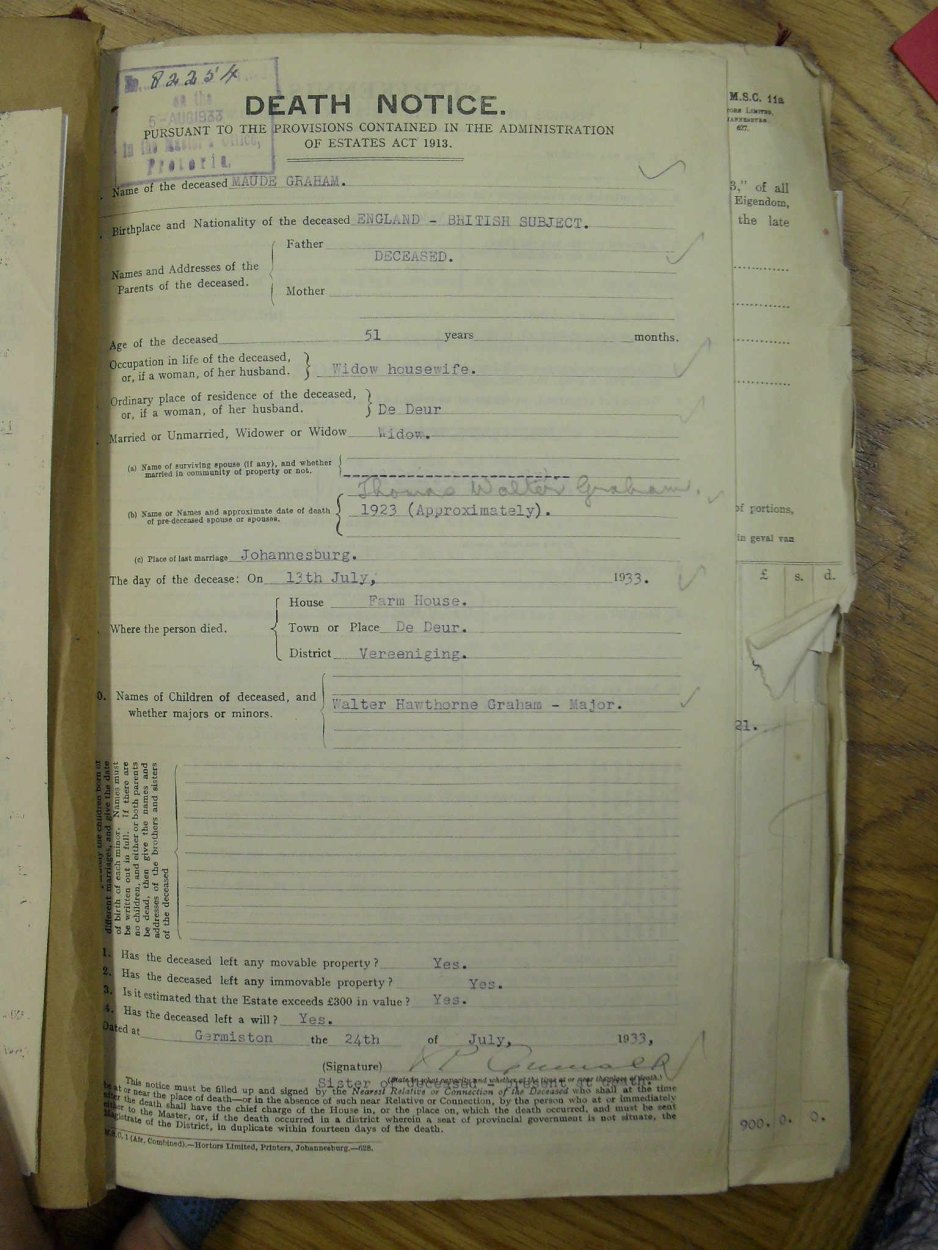 No. 82254
on the
5-AUG1933
in the Master's Office,
Pretoria.
DEATH NOTICE.
PURSUANT TO THE PROVISIONS CONTAINED IN THE ADMINISTRATION
OF ESTATES ACT 1913.
Name of the deceased MAUDE GRAHAM.
Birthplace and Nationality of the deceased ENGLAND - BRITISH SUBJECT.
Names and Addresses of the
Parents of the deceased.
Father
DECEASED.
Mother
Age of the deceased 51 years months.
Occupation in life of the deceased,
or, if a woman, of her husband. Widow housewife.
Ordinary place of residence of the deceased,
or, if a woman, of her husband. De Deur
Married or Unmarried, Widower or Widow Widow.
(a) Name of surviving spouse (if any), and whether
married in community of property or not.
Thomas Walter Graham.
(b) Name or Names and approximate date of death
of pre-deceased spouse or spouses. 1923 (Approximately).
(c) Place of last marriage Johannesburg.
The day of the decease: On 13th July, 1933.
Where the person died.
House Farm House.
Town or Place De Deur.
District Vereeniging.
0. Names of Children of deceased, and
whether majors or minors. Walter Hawthorne Graham - Major.
the children born of
different marriages, and give the date
of birth of each minor. Names must
be written out in full. If there are
no children, and either or both parents
be dead, then give the names and
addresses of the brothers and sisters
of the deceased
1. Has the deceased left any movable property? Yes.
2. Has the deceased left any immovable property? Yes.
3. Is it estimated that the Estate exceeds £300 in value? Yes.
4. Has the deceased left a will? Yes.
Dated at Germiston the 24th of July, 1933,
(Signature)
(State in what capacity and whether at the time at or near the place of death.)
Sister of deceased - present at death.
This notice must be filled up and signed by the Nearest Relative or Connection of the Deceased who shall at the time
be at or near the place of death—or in the absence of such near Relative or Connection, by the person who at or immediately
after the death shall have the chief charge of the House in, or the place on, which the death occurred, and must be sent
either to the Master, or, if the death occurred in a district wherein a seat of provincial government is not situate, the
Magistrate of the District, in duplicate within fourteen days of the death.
M.S.C. 1 (Afr. Combined).—Hortors Limited, Printers, Johannesburg.—628.
M.S.C. 11a
TORS LIMITED,
HANNESBURG.
627.
3," of all
Eigendom,
the late
of portions,
in geval van
£ s. d.
21.
900. 0. 0.